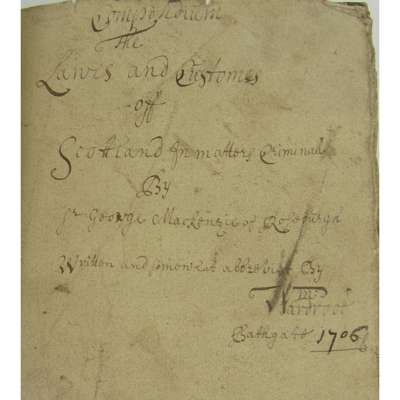 Compendium
The
Lawes and Customes
off
Scotland In matters Criminal
By
Sr George Mackenzie of Rosehaugh
Written and somewhat abbreviat By
Wardrobe
Bathgate 1706